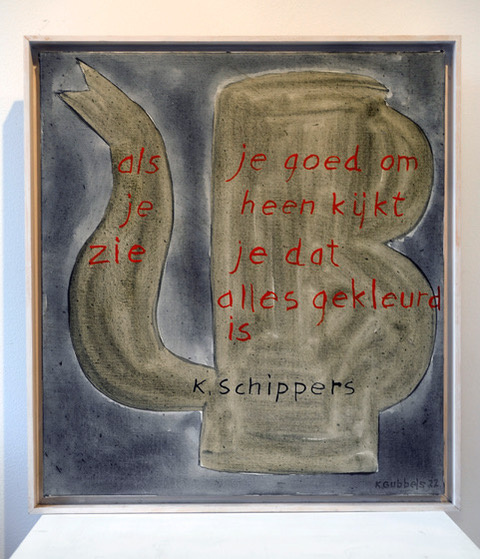 als je goed om
je heen kijkt
zie je dat
alles gekleurd
is
K. Schippers
KGubbels 22